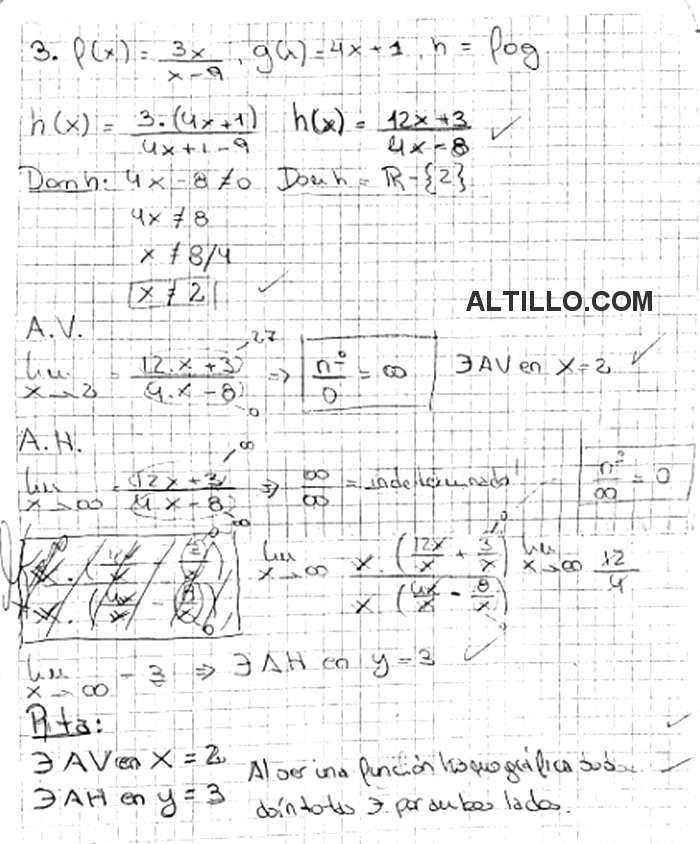 3. f(x) = 3x/(x-9), g(x) = 4x+1, h = fog
h(x) = 3.(4x+1)/(4x+1-9) h(x) = (12x+3)/(4x-8) ✓
Dom h: 4x-8≠0 Dom h = R-{2}
4x ≠ 8
x ≠ 8/4
x ≠ 2 ✓
ALTILLO.COM
A.V.
lim x→2 = (12.x+3)/(4.x-8) 27 0 ⇒ nº/0 = ∞ ∃ AV en x=2 ✓
A.H.
lim x→∞ = (12x+3)/(4x-8) ∞ ∞ ⇒ ∞/∞ = indeterminado! nº/∞ = 0
lim x→∞ x.(12x/x + 3/x)/x.(4x/x - 8/x) 0 0 lim x→∞ 12/4
lim x→∞ = 3 ⇒ ∃ AH en y=3 ✓
Rta:
∃ AV en x = 2
∃ AH en y = 3
Al ser una función homográfica
por ambos lados.